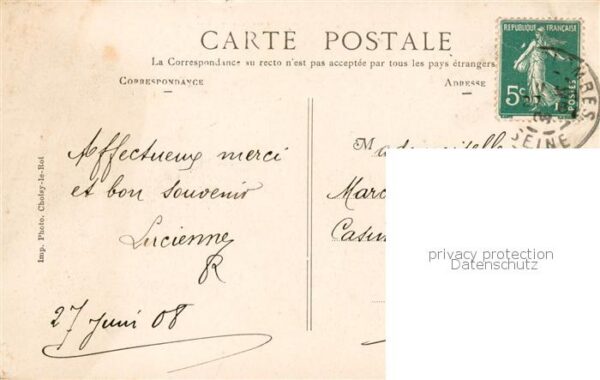 CARTE POSTALE
La Correspondance au recto n'est pas acceptée par tous les pays étrangers.
CORRESPONDANCE
ADRESSE
REPUBLIQUE FRANÇAISE
5c
POSTES
SEINE
Affectueux merci
et bon souvenir
Lucienne
R
27 Juin 08
Mademoiselle
Marc
Casim
Imp. Photo. Choisy-le-Roi
privacy protection
Datenschutz